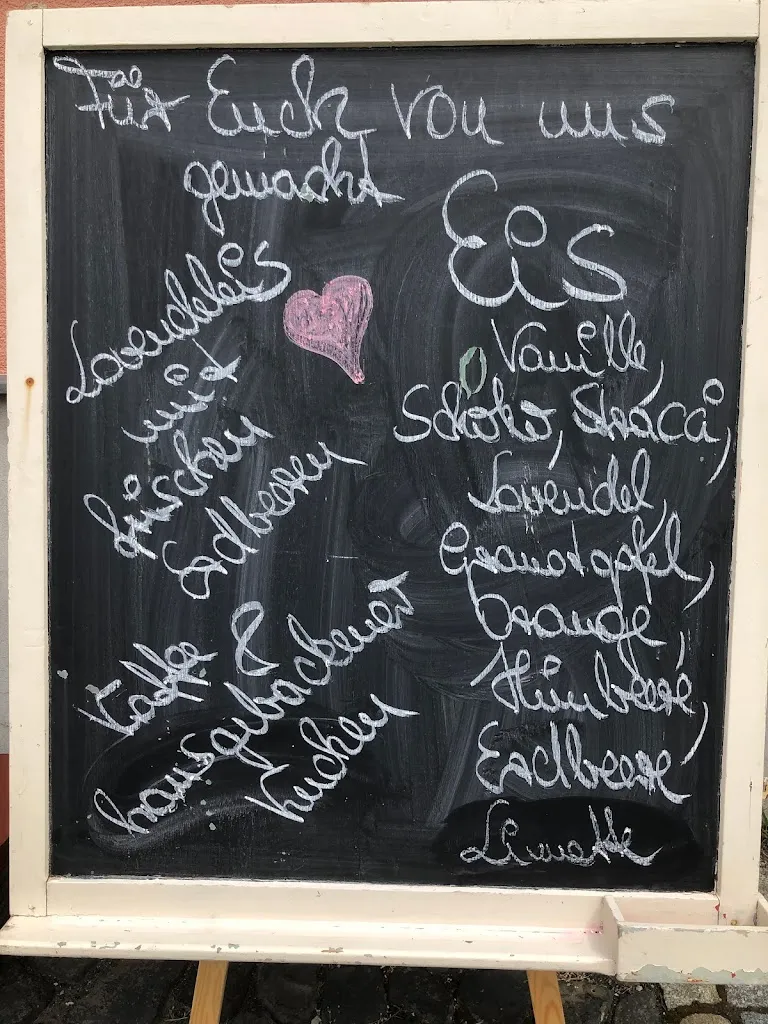 Für Euch von uns
gemacht
Eis
Vanille,
Schoko, Straca,
Lavendel,
Granatapfel,
Orange,
Himbeere,
Erdbeere
Limette
Lavendeleis
mit
frischen
Erdbeeren
Kaffee &
hausgebackener
Kuchen